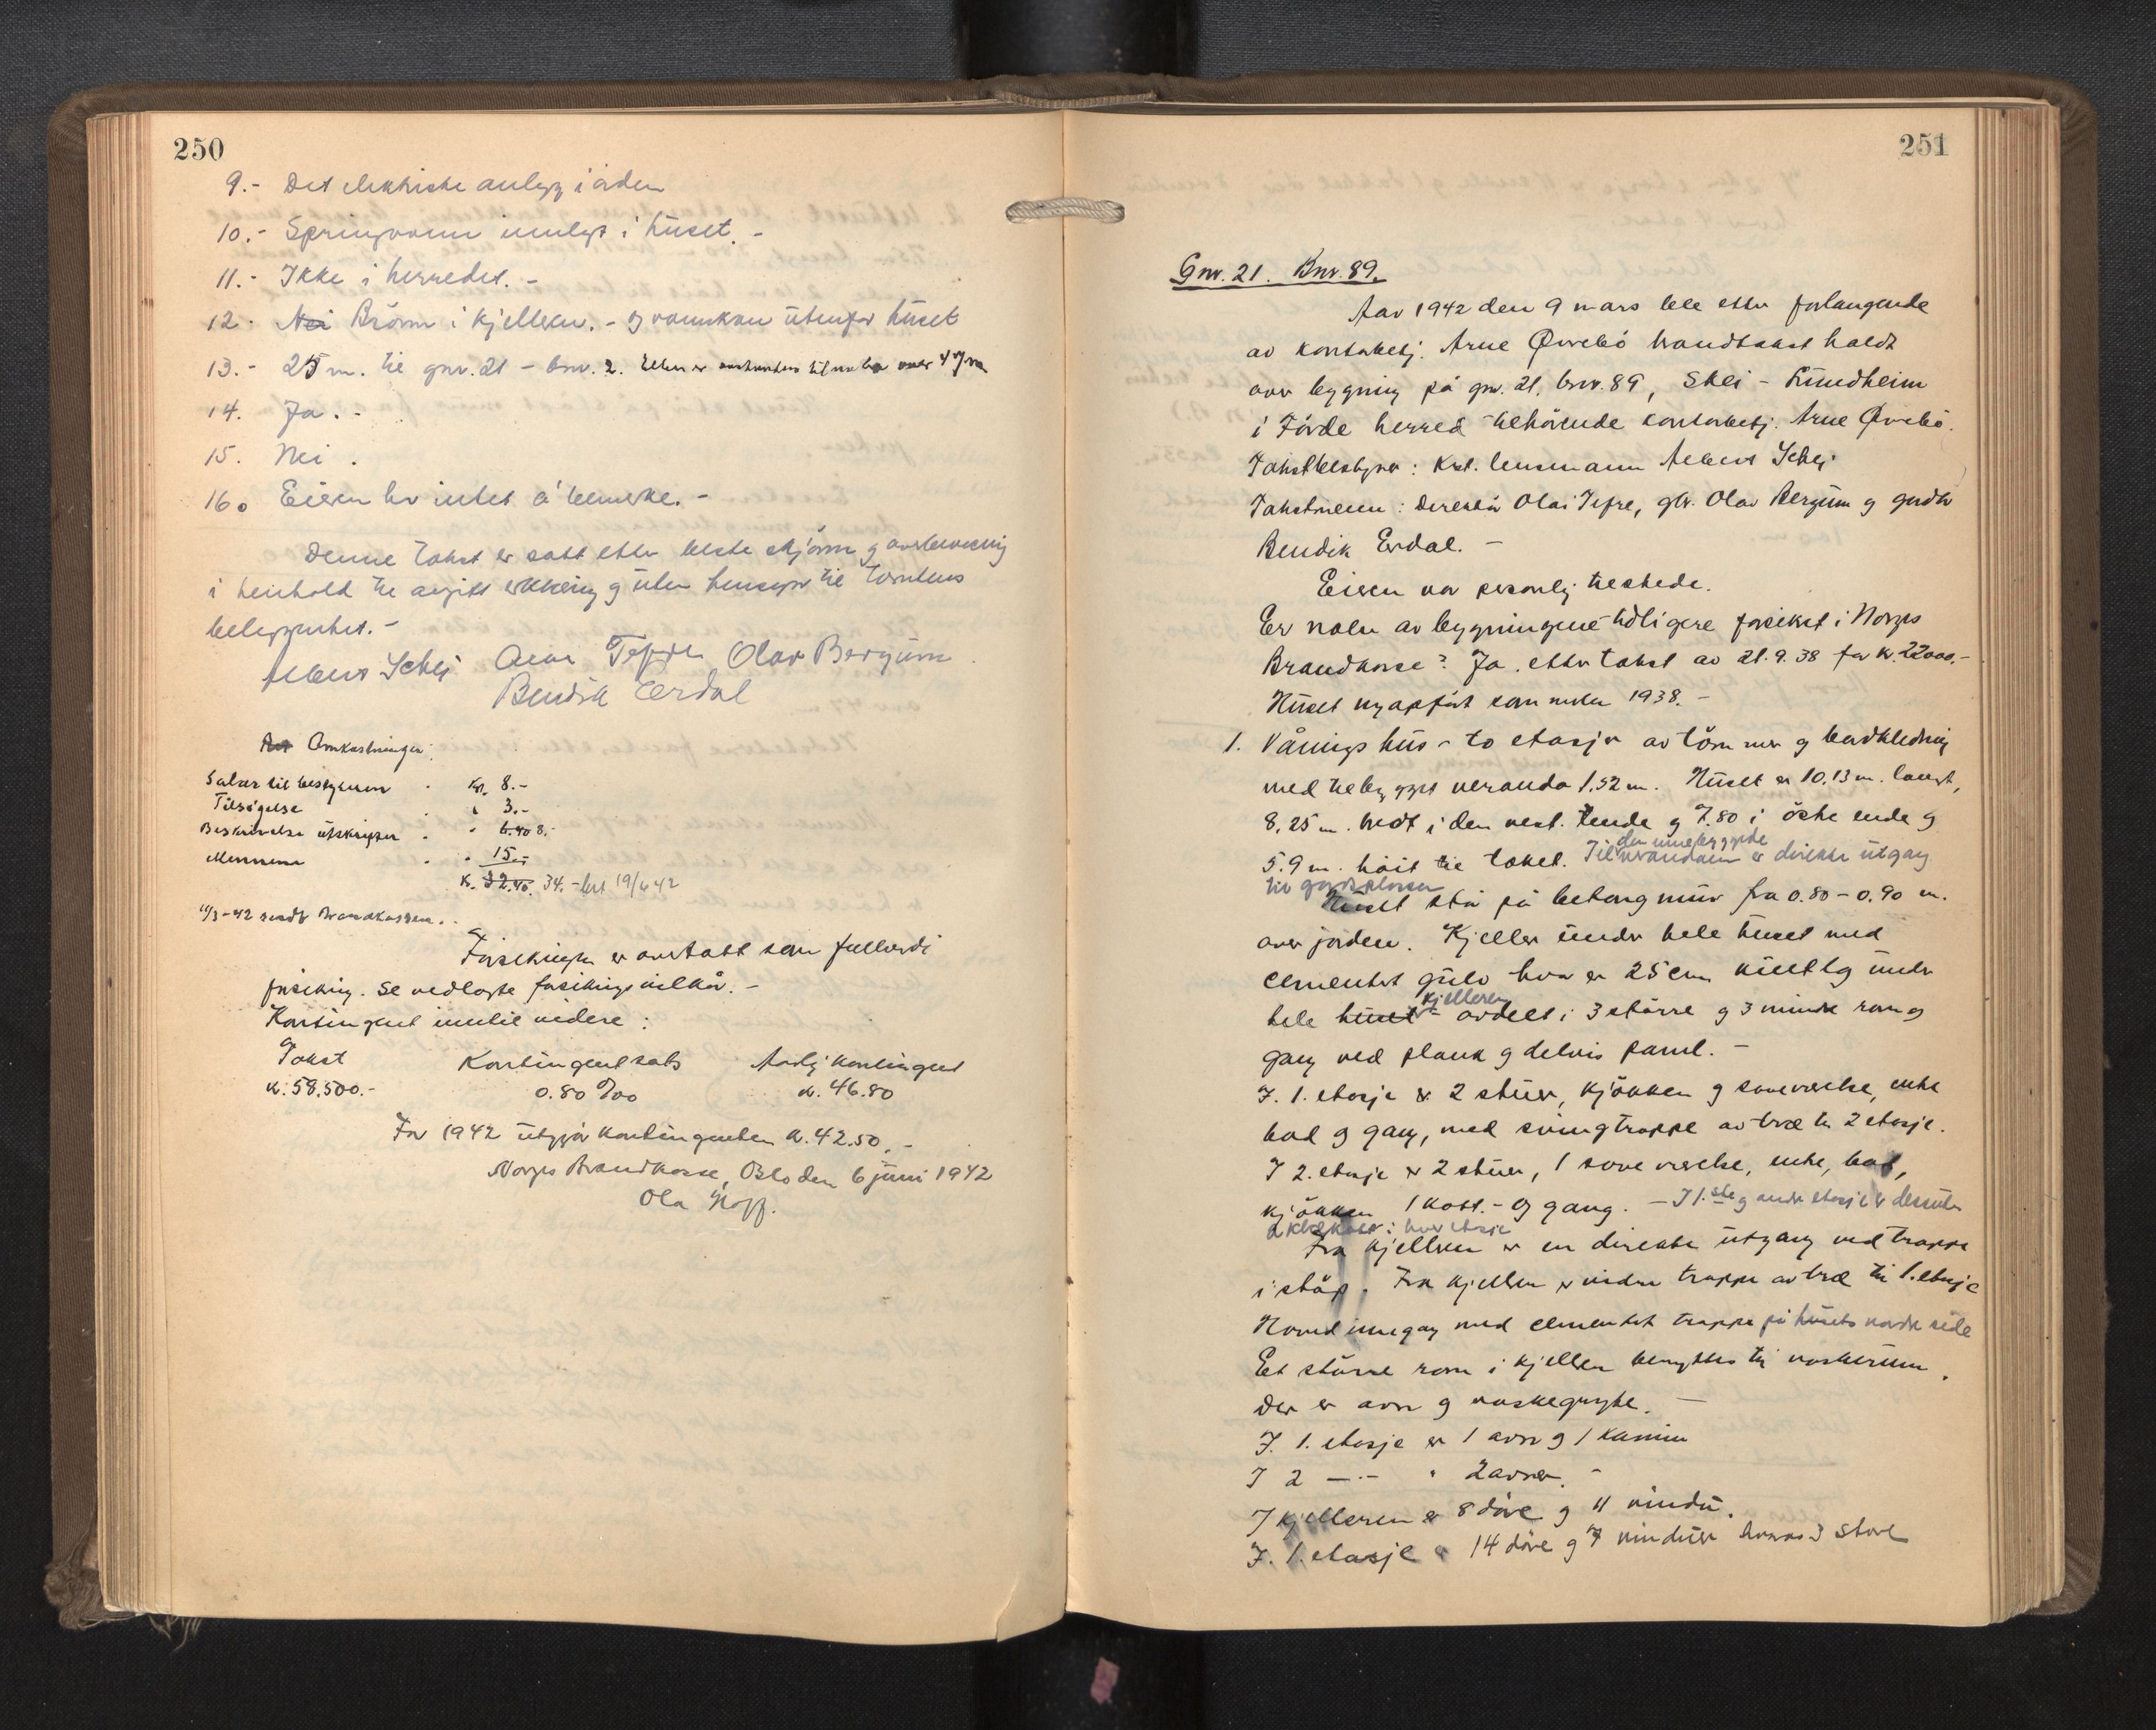 250
9.- Det elektriske anlegg i orden
10.- Springvann innlagt i huset. -
11.- Ikke i herredet. -
12. Nei Brönn i kjelleren. - og vannkran utenfor huset
13.- 25 m. til gnr. 21 - bnr. 2. Ellers er avstanden til nabo over 47 m
14. Ja. -
15. Nei.
16. Eieren har intet å bemerke. -
Denne takst er satt etter beste skjönn og overbevisning
i henhold til avgitt erklæring og uten hensyn til tomtens
beliggenhet. -
Albert Schei Olai Tefre Olav Bergum
Bendik Erdal
Omkostninger:
Salær til bestyreren . Kr. 8.-
Tilsigelse " 3.-
Beskrivelse utskrifter . " 6.40 8.-
Mennene . " 15.-
Kr. 32.40. 34.- bet 19/6 42
11/3-42 sendt Brandkassen. .
Forsikringen er overtatt som fullverdi
forsikring. Se vedlagte forsikringsvilkår. -
Kontingent inntil videre:
Takst Kontingentsats Aarlig kontingent
kr. 58.500.- 0.80 ‰ kr. 46.80
For 1942 utgjør kontingenten kr. 42.50. -
Norges Brandkasse, Oslo den 6 juni 1942
Ola Hoff.
251
Gnr. 21. Bnr. 89.
Aar 1942 den 9 mars ble etter forlangende
av kontorbetj. Arne Övrebö brandtakst holdt
over bygning på gnr. 21, bnr. 89, Skei - Lundheim
i Förde herred tilhörende kontorbetj. Arne Övrebö.
Takstbestyrer: Kst. lensmann Albert Schei
Takstmenn: Direktör Olai Tefre, gbr. Olav Bergum og gardbr
Bendik Erdal. -
Eieren var personlig tilstede.
Er nolen av bygningene tidligere forsikret i Norges
Brandkasse? Ja. etter takst av 21.9.38 for kr. 22000.-
Huset nyoppfört sommeren 1938. -
1. Våningshus - to etasjer av tömmer og bordkledning
med tilbygget veranda 1.52 m. Huset er 10.13 m. langt,
8,25 m. bredt i den vest. ende og 7.80 i östre ende og
5.9 m. höit til taket. Til den innebyggede verandaen er direkte utgang
til gardsplassen
Huset står på betongmur fra 0.80 - 0.90 m.
over jorden. Kjeller under hele huset med
cementert gulv hvor er 25 cm kultlag under
hele huset kjelleren - avdelt i 3 större og 3 mindre rom og
gang ved plank og delvis panel. -
I. 1. etasje er 2 stuer, kjökken og soveværelse, entre
bad og gang, med svingtrappe av træ til 2 etasje.
I 2. etasje er 2 stuer, 1 soveværelse, entre, bad,
kjökken 1 kott. - og gang. - I 1.ste og andre etasje er dessuten
2 kleskott i hver etasje
Fra kjelleren er en direkte utgang med trappe
i stöp. Fra kjelleren er videre trappe av træ til 1. etasje
Hovedinngang med cementert trappe på husets nordre side
Et större rom i kjelleren benyttes til vaskerum.
Der er ovn og vaskegryte. -
I. 1. etasje er 1 ovn og 1 kamin
I 2 -.- " 2 ovner. -
I kjelleren er 8 döre og 11 vindu.
I. 1. etasje er 14 döre og 7 vinduer hvorav 3 store